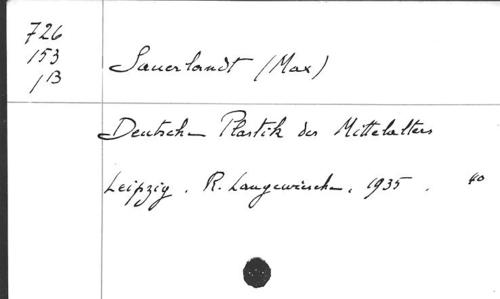 726
153
1B
Sauerlandt (Max)
Deutsche Plastik des Mittelalters
Leipzig. R. Langewiesche, 1935. 40